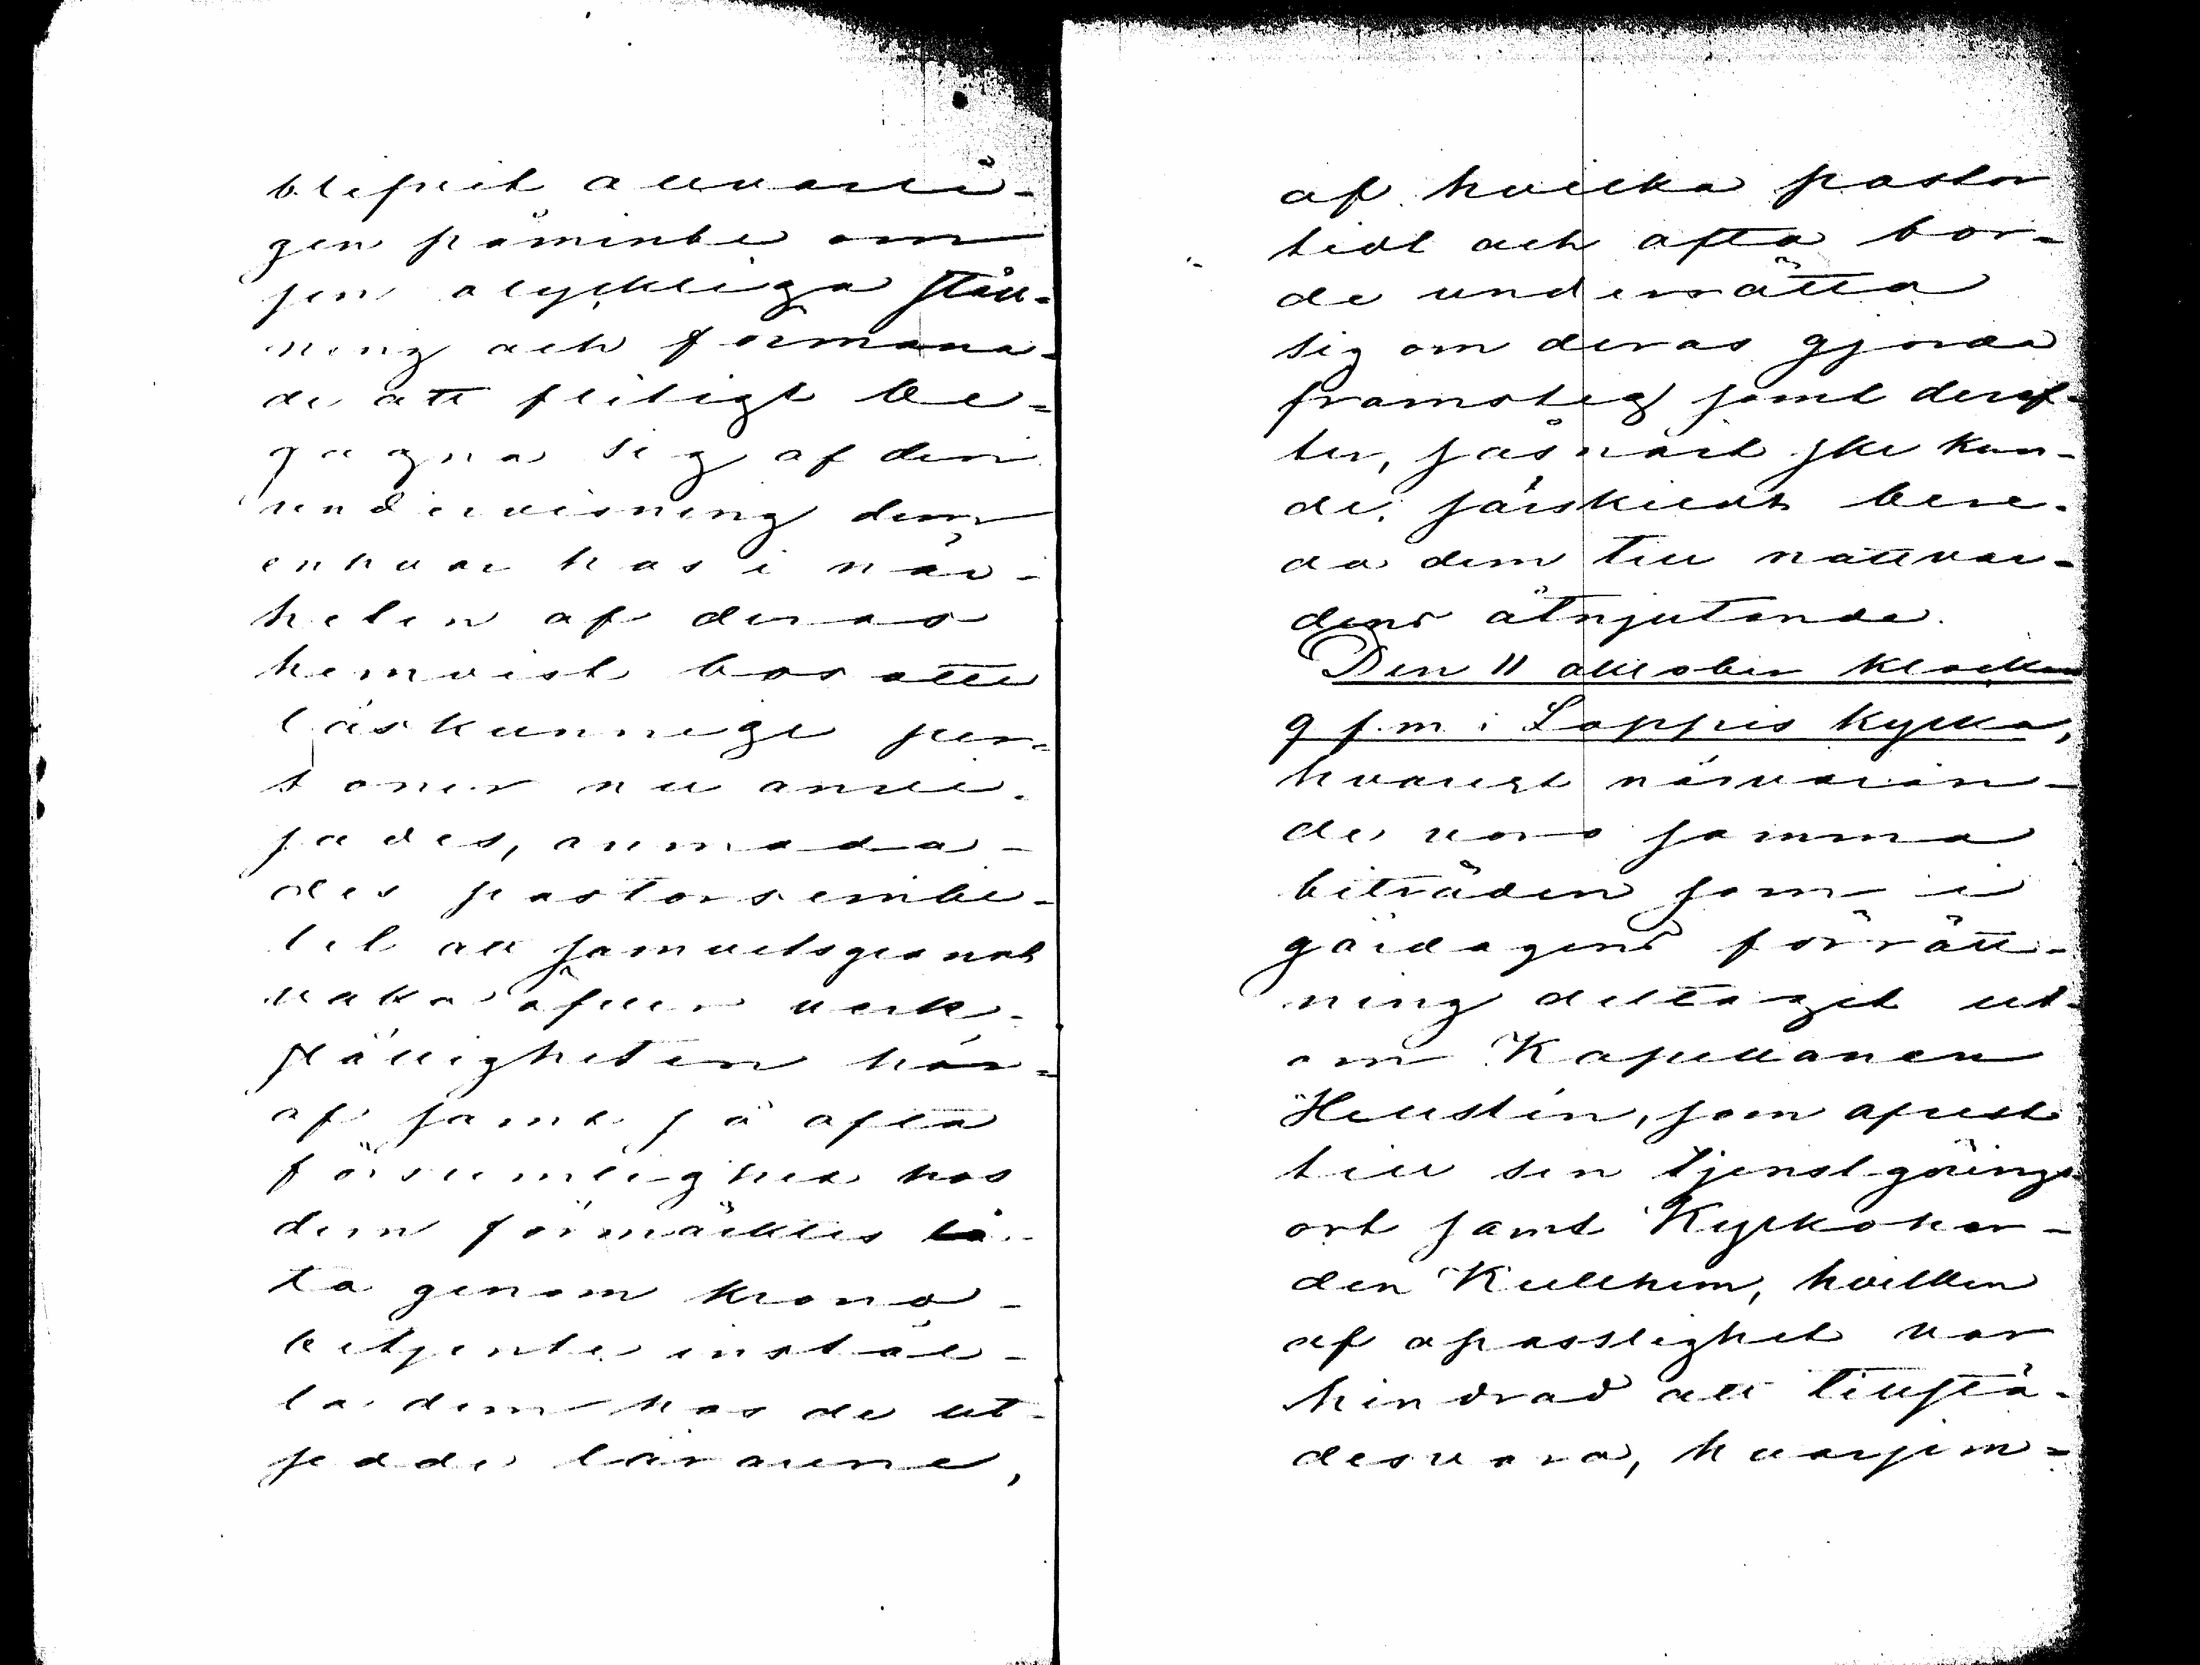 blifvit allvarli-
gen påminte om
sin olyckliga ställ-
ning och förmana-
de att flitigt be-
gagna sig af den
undervisning dem
enhvar hos i när-
heten af deras
hemvist bosatte
läskunnige per-
soner nu anvi-
sades, anmoda-
des pastorsembe-
tet att samvetsgrant
vaka öfver verk-
ställigheten här-
af samt så ofta
försumlighet hos
dem förmärktes lå-
ta genom krono-
betjente instäl-
la dem hos de ut-
sedde lärarene,
af hvilka pastor
tidt och ofta bor-
de underrätta
sig om deras gjorda
framsteg samt deref-
ter, såsnart ske kun-
de, särskildt bere-
da dem till nattvar-
dens åtnjutande.
Den 11 oktober klockan
9 f.m. i Loppis kyrka,
hvarest närvaran-
de voro samma
biträden som i
gårdagens förrätt-
ning deltagit ut-
om Kapellanen
Hellstén, som afrest
till sin tjenstgörings-
ort samt Kyrkoher-
den Kullhem, hvilken
af opasslighet var
hindrad att tillstä-
desvara, hvarjem-